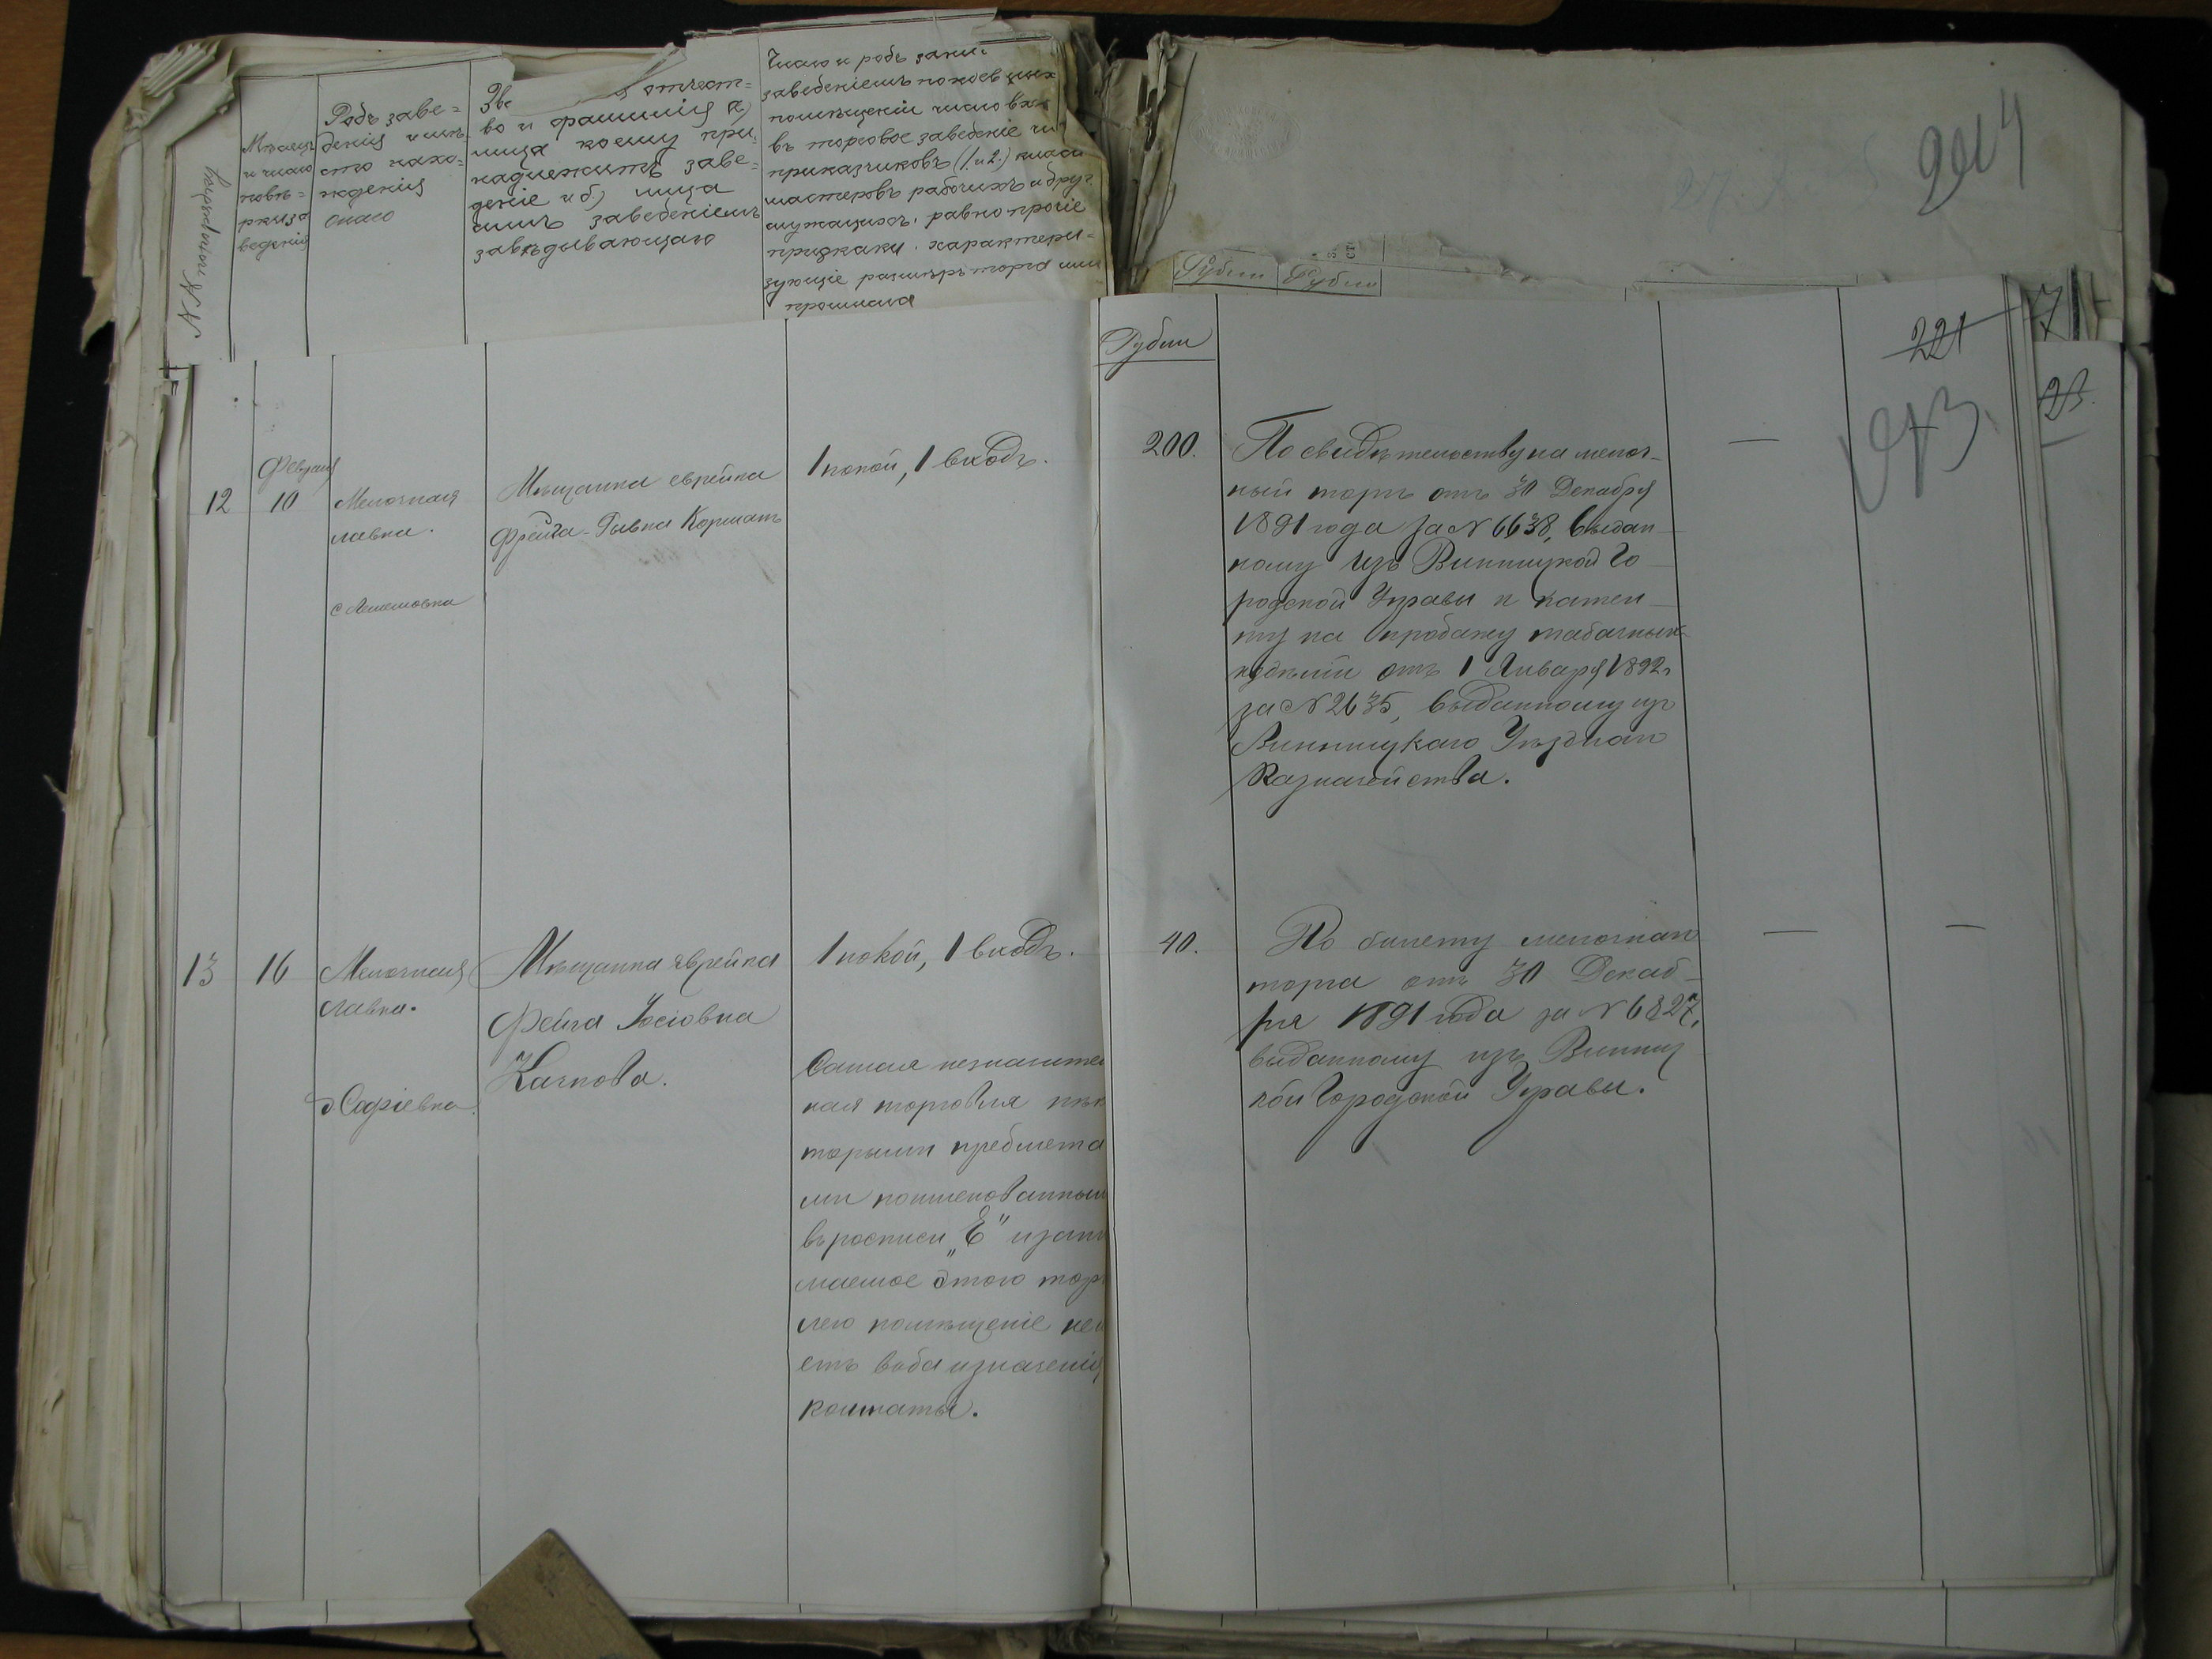 порядочные NN
Мѣсяцъ
и число
повѣ=
рки за
веденія
Родъ заве=
денія и мѣ-
сто нахо=
жденія
онаго
Зва отчест=
во и фамилія а)
лица коему при
надлежитъ заве=
деніе и б) лица
симъ заведеніемъ
завѣдывающаго
Число и родъ зани-
заведеніемъ покоевъ иныхъ
помѣщеній число вхо
въ торговое заведеніе чи
приказчиковъ (1 и 2) класс
мастеровъ рабочихъ и друг
служащихъ, равно прочіе
признаки, характери=
зующіе размѣръ торга или
промысла
904
Рубли Рубли
Рубли
221
273
7
23.
12
Февраля
10
Мелочная
лавка.
с Лемешовка
Мѣщанка еврейка
Фрейга-Рывка Корматъ
1 покой, 1 входъ.
200.
По свидѣтельству на мелоч-
ный торгъ отъ 30 Декабря
1891 года за N 6638, выдан-
ному изъ Винницкой Го-
родской Управы и патен-
ту на продажу табачныхъ
издѣлій отъ 1 Января 1892 г
за N 2635, выданному изъ
Винницкаго Уѣзднаго
Казначейства.
—
13
16
Мелочная
лавка.
д Софіевка.
Мѣщанка еврейка
Фейга Іосіовна
Качкова.
1 покой, 1 входъ.
Самая незначитель
ная торговля нѣк
торыми предмета
ми поименованным
въ росписи „Е" и зани
маемое этого тор
лею помѣщеніе не и
етъ вида и значенія
комнаты.
40.
По билету мелочнаго
торга отъ 30 Декаб-
ря 1891 года за N 6827,
выданному изъ Винниц
кой Городской Управы.
—
—